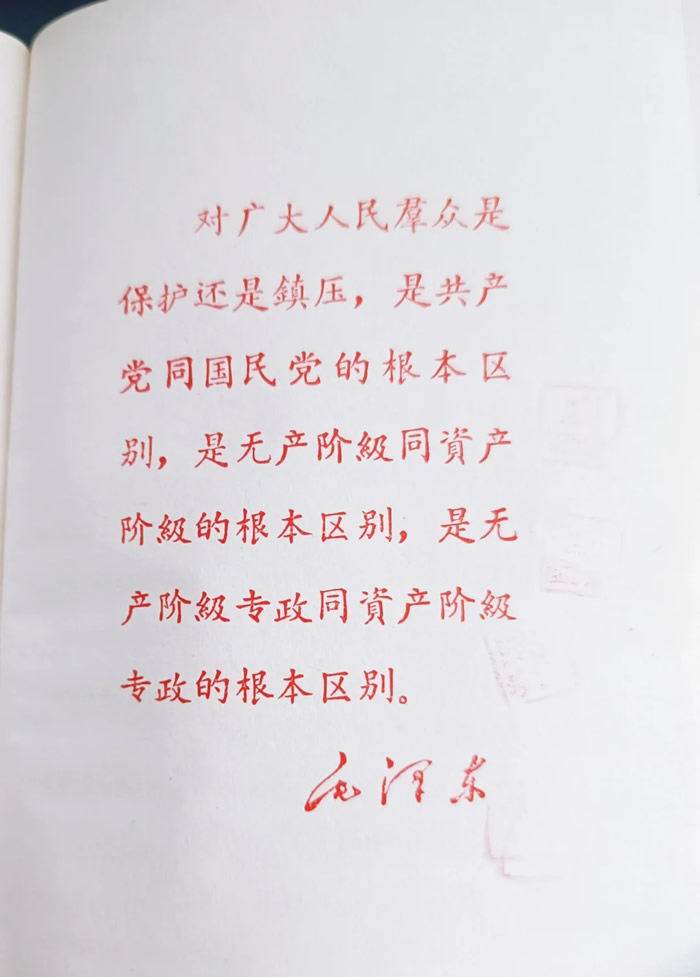 对广大人民羣众是
保护还是鎮压，是共产
党同国民党的根本区
别，是无产阶級同資产
阶級的根本区别，是无
产阶級专政同資产阶級
专政的根本区别。
毛泽东